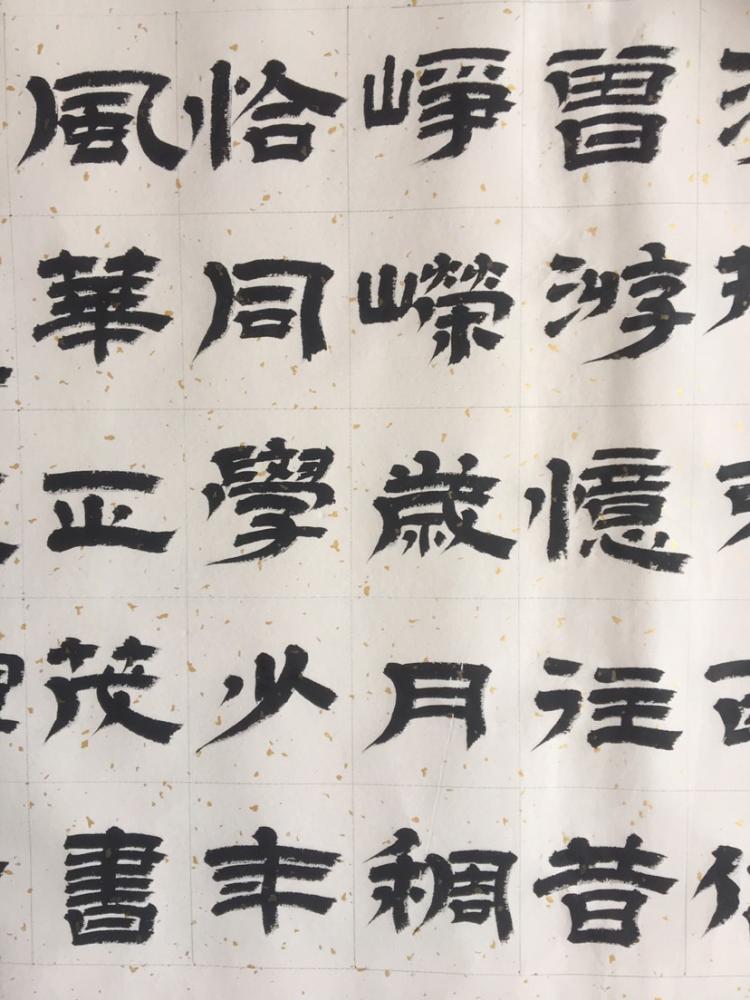 曾游憶往昔
崢嶸歲月稠
恰同學少年
風華正茂書